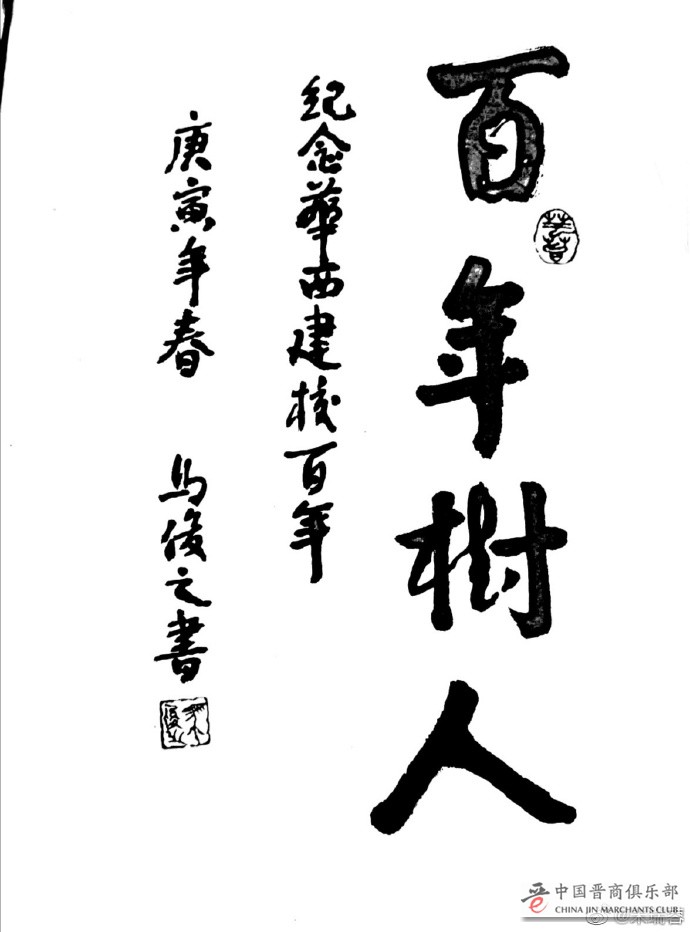 百年樹人
紀念華西建校百年
庚寅年春 馬俊之書
中国晋商俱乐部
CHINA JIN MARCHANTS CLUB